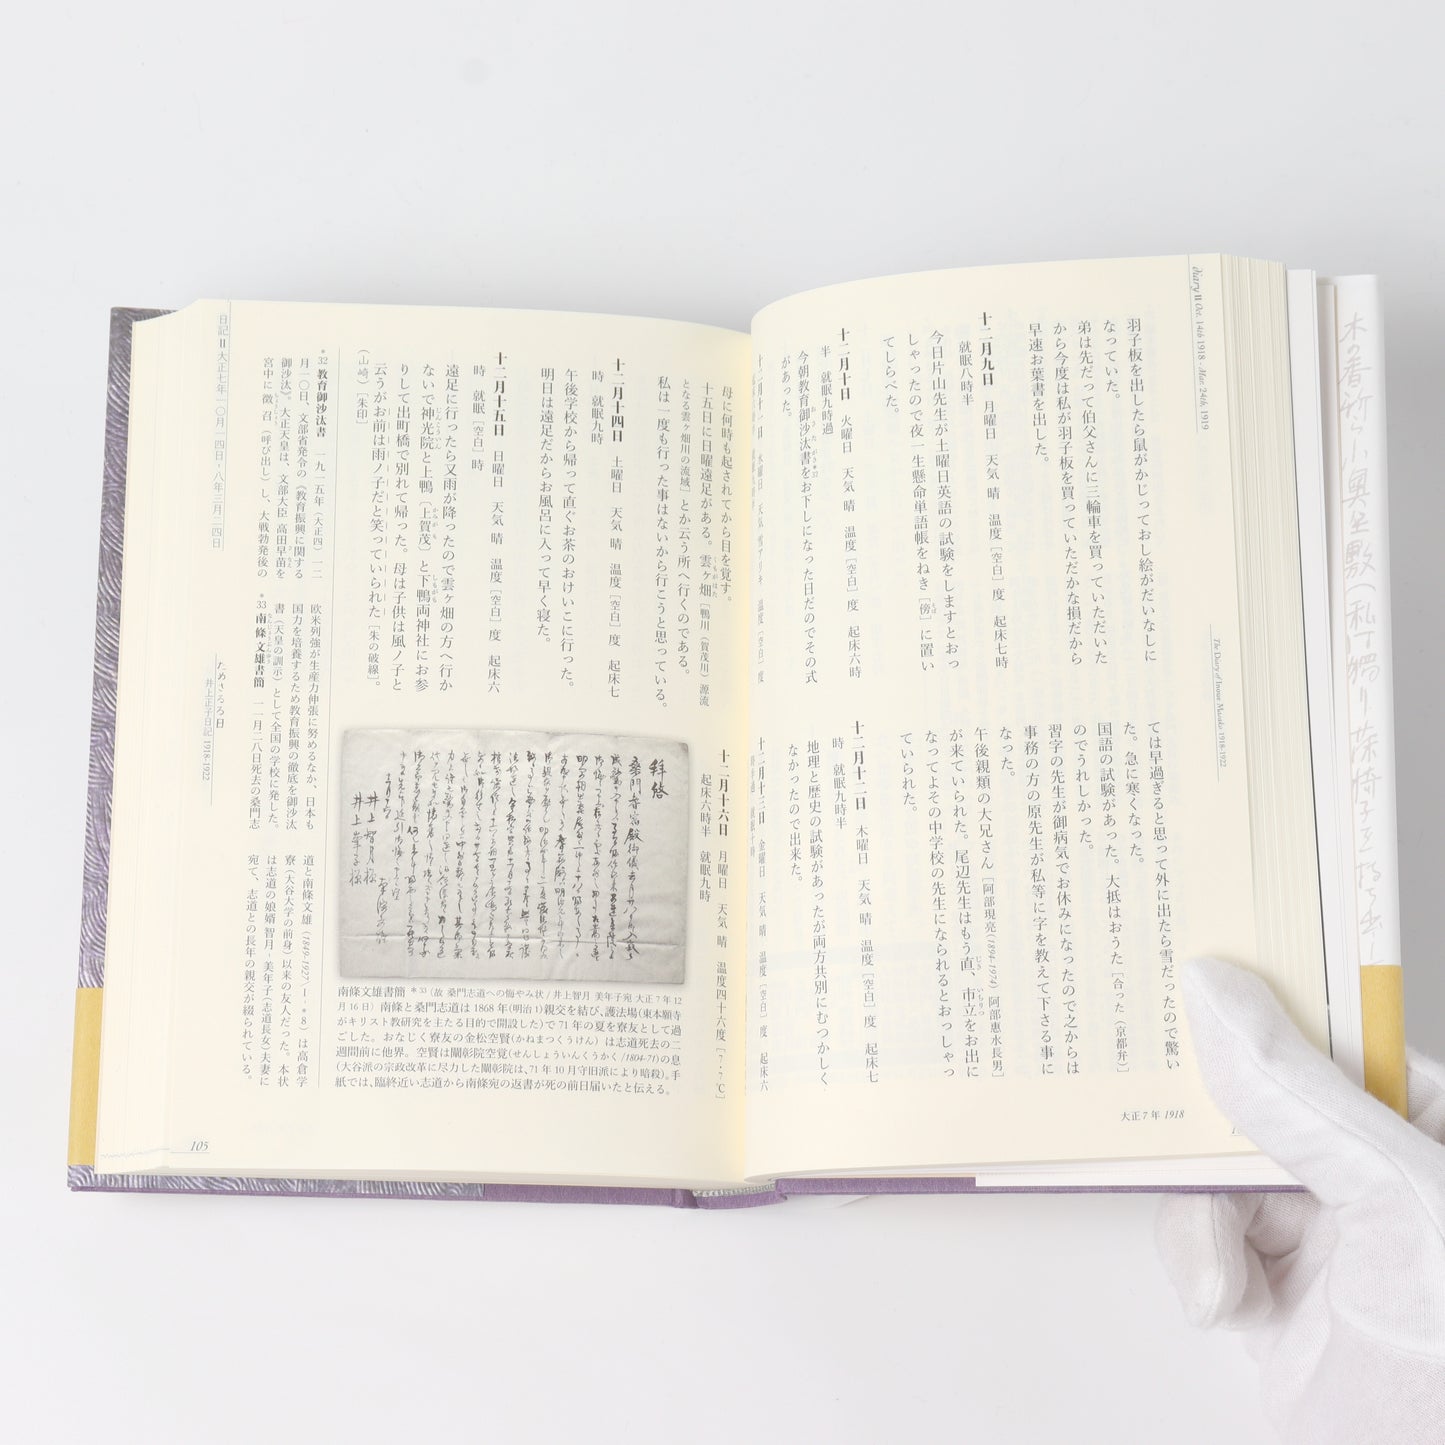 diary II Oct. 14th 1918 - Mar. 24th 1919
The Diary of Inoue Masako 1918-1922
羽子板を出したら鼠がかじっておし絵がだいなしに
なっていた。
弟は先だって伯父さんに三輪車を買っていただいた
から今度は私が羽子板を買っていただかな損だから
早速お葉書を出した。
十二月九日　月曜日　天気 晴　温度［空白］度　起床七時
就眠八時半
今日片山先生が土曜日英語の試験をしますとおっ
しゃったので夜一生懸命単語帳をねき［傍］に置い
てしらべた。
十二月十日　火曜日　天気 晴　温度［空白］度　起床六時
半　就眠九時過
今朝教育御沙汰書＊32をお下しになった日だのでその式
があった。
十二月十一日　水曜日　天気 雪アリキ　温度［空白］度
ては早過ぎると思って外に出たら雪だったので驚い
た。急に寒くなった。
国語の試験があった。大抵はおうた［合った（京都弁）］
のでうれしかった。
習字の先生が御病気でお休みになったので之からは
事務の方の原先生が私等に字を教えて下さる事に
なった。
午後親類の大兄さん［阿部現亮(1894-1974)阿部惠水長男］
が来ていられた。尾辺先生はもう直、市立をお出に
なってよその中学校の先生になられるとおっしゃっ
ていられた。
十二月十二日　木曜日　天気 晴　温度［空白］度　起床七
時　就眠九時半
地理と歴史の試験があったが両方共別にむつかしく
なかったので出来た。
十二月十三日　金曜日　天気 晴　温度［空白］度　起床六
大正7年 1918
母に何時も起されてから目を覚す。
十五日に日曜遠足がある。雲ヶ畑［鴨川（賀茂川）源流
となる雲ヶ畑川の流域］とか云う所へ行くのである。
私は一度も行った事はないから行こうと思っている。
十二月十四日　土曜日　天気 晴　温度［空白］度　起床七
時　就眠九時
午後学校から帰って直ぐお茶のおけいこに行った。
明日は遠足だからお風呂に入って早く寝た。
十二月十五日　日曜日　天気 晴　温度［空白］度　起床六
時　就眠［空白］時
遠足に行ったら又雨が降ったので雲ヶ畑の方へ行か
ないで神光院と上鴨［上賀茂］と下鴨両神社にお参
りして出町橋で別れて帰った。母は子供は風ノ子と
云うがお前は雨ノ子だと笑っていられた［朱の破線］。
（山崎）［朱印］
十二月十六日　月曜日　天気 晴　温度四十六度［7.7℃］
起床六時半　就眠九時
拝啓
南條文雄書簡 ＊33（故 桑門志道への悔やみ状 / 井上智月 美年子宛 大正7年12
月16日）南條と桑門志道は1868年(明治1)親交を結び、護法場(東本願寺
がキリスト教研究を主たる目的で開設した)で71年の夏を寮友として過
ごした。おなじく寮友の金松空賢(かねまつくうけん)は志道死去の二
週間前に他界。空賢は闡彰院空覚(せんしょういんくうかく/1804-71)の息
(大谷派の宗政改革に尽力した闡彰院は、71年10月守旧派により暗殺)。手
紙では、臨終近い志道から南條宛の返書が死の前日届いたと伝える。
＊32 教育御沙汰書　一九一五年（大正四）一二
月一〇日、文部省発令の《教育振興に関する
御沙汰》。大正天皇は、文部大臣 高田早苗を
宮中に徴召（呼び出し）し、大戦勃発後の
欧米列強が生産力伸張に努めるなか、日本も
国力を培養するため教育振興の徹底を御沙汰
書（天皇の訓示）として全国の学校に発した。
＊33 南條文雄書簡　一一月二八日死去の桑門志
道と南條文雄（1849-1927＞I-＊8）は高倉学
寮（大谷大学の前身）以来の友人だった。本状
は志道の娘婿 智月-美年子(志道長女)夫妻に
宛て、志道との長年の親交が綴られている。
日記II 大正七年一〇月一四日-八年三月二四日
ためさるる日
井上正子日記 1918-1922
105